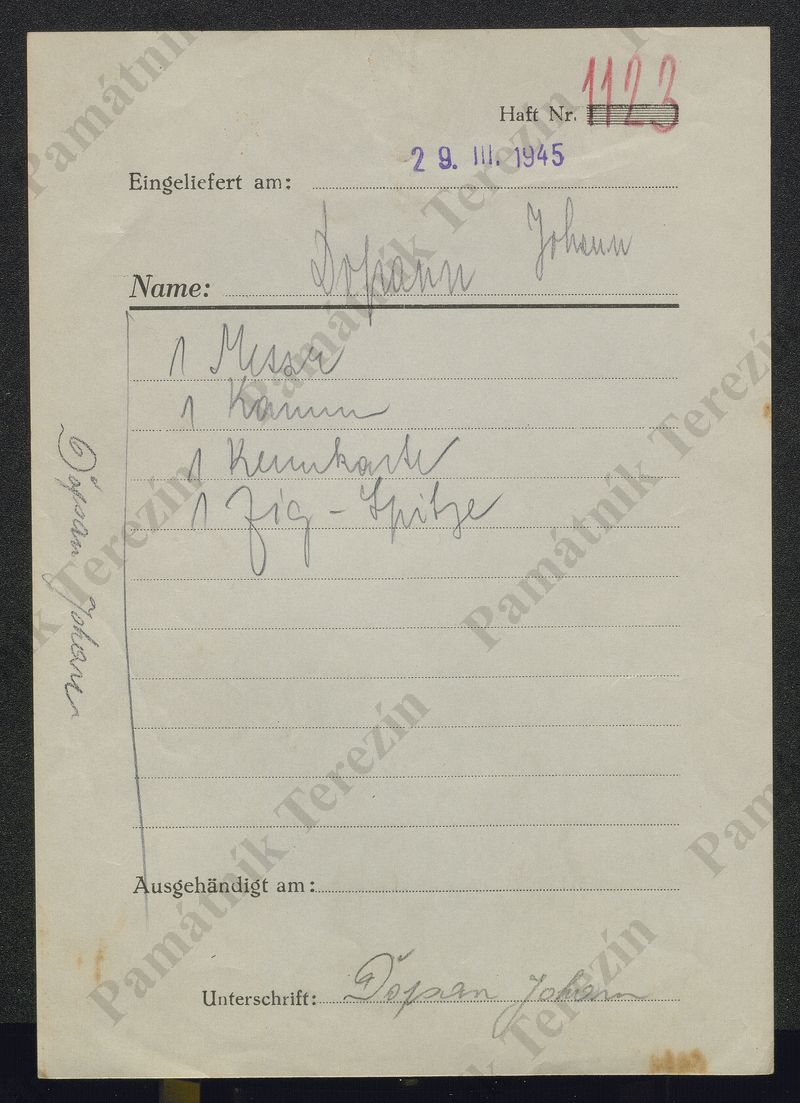 Haft Nr. 1123
29. III. 1945
Eingeliefert am:
Johann
Name:
1 Messer
1 Kamm
1 Kennkarte
1 Zig-Spitze
Johann
Ausgehändigt am:
Unterschrift: Johann
Památník Terezín